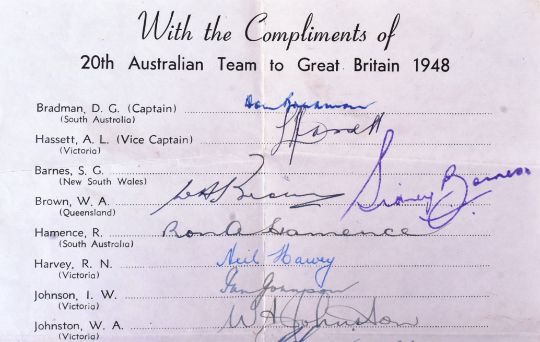 With the Compliments of
20th Australian Team to Great Britain 1948
Bradman, D. G. (Captain) Don Bradman
(South Australia)
Hassett, A. L. (Vice Captain) L Hassett
(Victoria)
Barnes, S. G. Sidney Barnes
(New South Wales)
Brown, W. A. W A Brown
(Queensland)
Hamence, R. Ron A Hamence
(South Australia)
Harvey, R. N. Neil Harvey
(Victoria)
Johnson, I. W. Ian Johnson
(Victoria)
Johnston, W. A. W A Johnston
(Victoria)